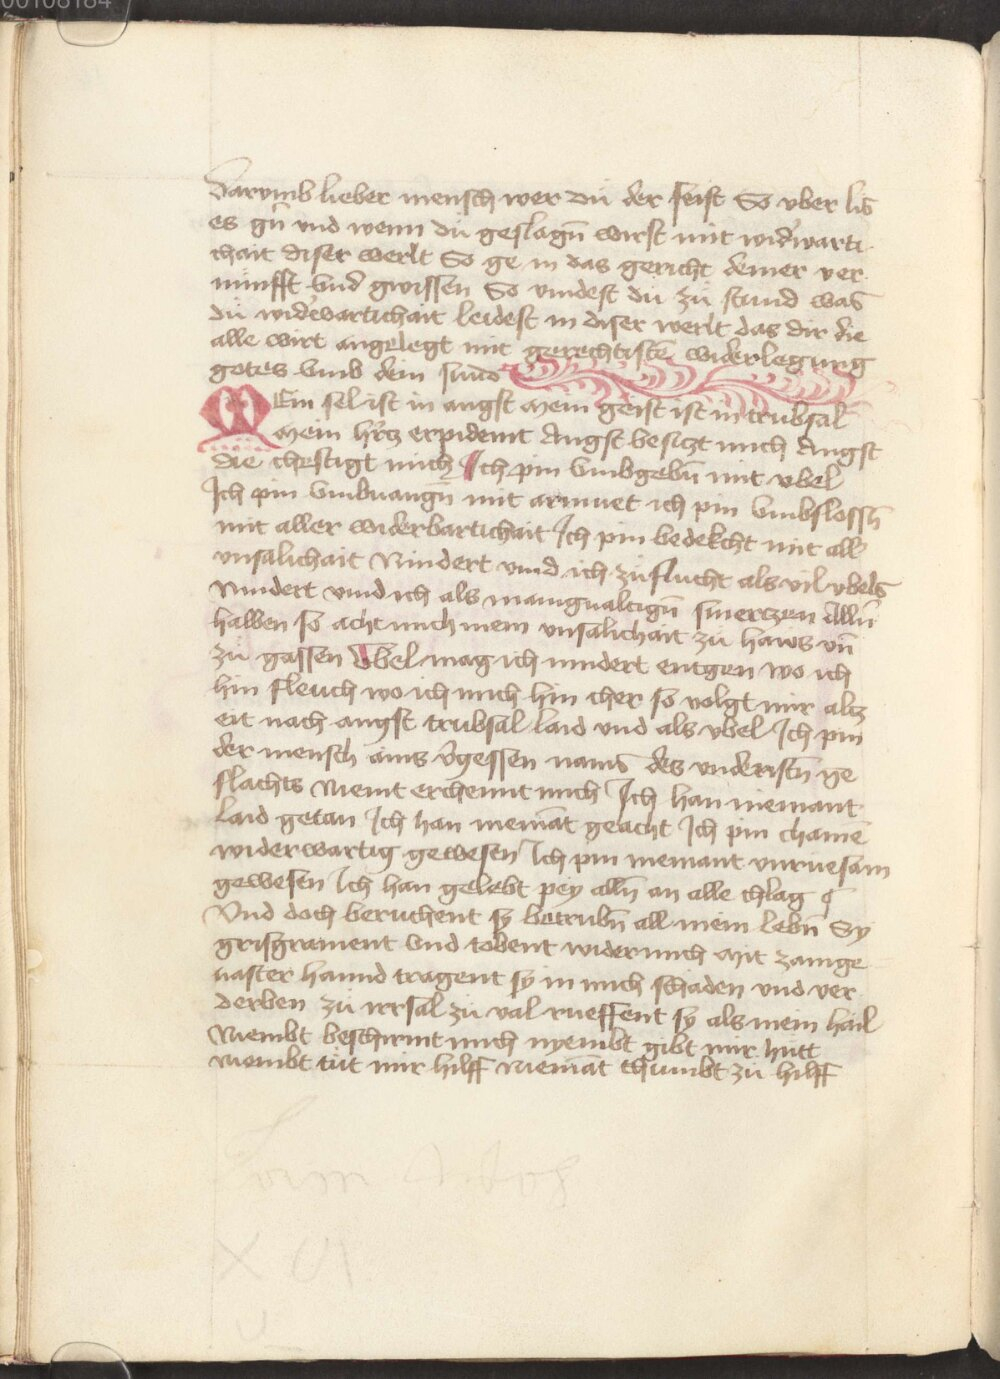 00108184
Darvmb lieber mensch wer du der seist So vber lis
es gn̄ vnd wenn du geslagn̄ wirst mit wid'warti
chait diser werlt So ge in das gericht deiner ver
nunfft vnd gwissen So vindest du zu stund was
du wid'wartichait leidest in diser werlt das dir die
alle wirt angelegt mit gerechtistē widerlegung
gotes vmb dein sund
MEin sel ist in angst Mein geist ist in trubsal
Mein hrcz erpidemt Angst besiczt mich Angst
die chestigt mich Ich pin vmbgebn̄ mit vbel
Ich pin vmbuangn̄ mit armuet ich pin vmbslossn̄
mit aller widerbartichait Ich pin bedekcht mit all
vnsalichait Nindert vind ich zuflucht als vil vbels
Nindert vind ich als manigualtign̄ smerczen Alln̄
halben so acht mich mein vnsalichait zu haws vn̄
zu gassen Vbel mag ich nindert entgen wo ich
hin fleuch wo ich mich hin cher so volgt mir alcz
eit nach angst trubsal laid vnd als vbel Ich pin
der mensch ains v'gessen nams des vnderistn̄ ge
slachts Niemt erchennt mich Ich han niemant
laid getan Ich han niemāt geacht Ich pin chainē
widerwartig gewesen Ich pin niemant vnruesam
gewesen Ich han gelebt pey alln̄ an alle chlag
Vnd doch beruchent sy betrubn̄ all mein lebn̄ Sy
grisgrament vnd tobent wider mich Mit zamge
uaster hannd tragent sy in mich schaden vnd ver
derben zu irrsal zu val rueffent sy als mein hail
Niembt beschirmt mich nyembt gibt mir hutt
niembt tut mir hilff Niemāt chumbt zu hilff